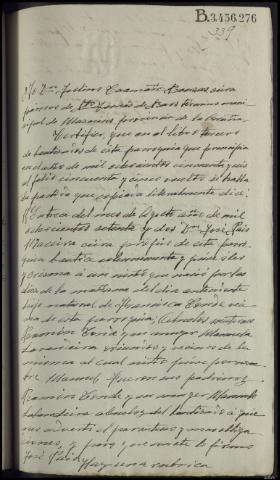 B.3.456.276
339
párroco de Sta. María de Baos término muni
cipal de Mazaricos provincia de la Coruña.
Certifico, que en el libro tercero
de bautizados de esta parroquia que principia
en el año de mil ochocientos cincuenta y seis
al folio cincuenta y cinco vuelto se halla
la partida que copiada literalmente dice:
del mes de Agosto año de mil
ochocientos setenta y dos Don José Ruiz
Maceira cura propio de esta parro
quia bauticé solemnemente y puse óleo
y crisma a un niño que nació por las
diez de la mañana del día antecedente
hijo natural de Francisca Conde veci
na de esta parroquia; Abuelos maternos
Ramón Conde y su muger Manuela
vecinos de la
misma al cual niño puse por nom
bre Manuel. Fueron sus padrinos
Ramón Conde y su muger Manuela
abuelos del bautizado á quie
nes advertí el parentesco y sus obliga
ciones, y para que conste lo firmo
José Ruiz
Hay una rúbrica